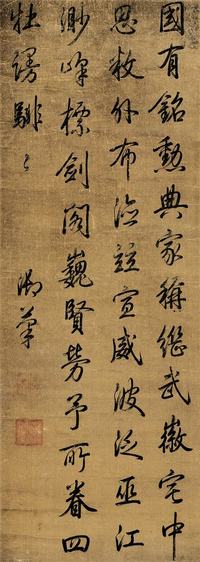 國有銘勳典家稱繼武徽宅中
思敉外布澨茲宣威波泛巫江
渺峰標劍閣巍賢勞予所眷四
牡謾騑〻
御筆